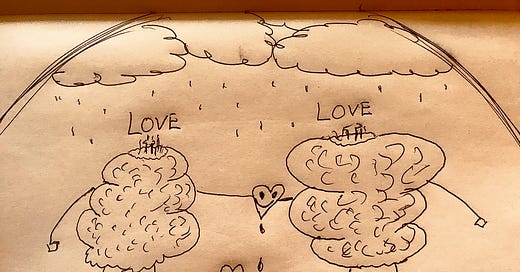 LOVE
LOVE